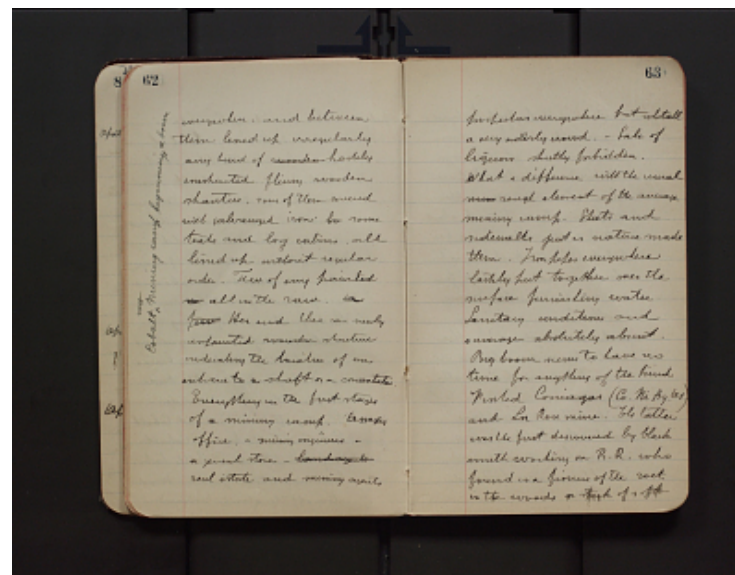 8
62
everywhere. and between
them lined up irregularly
any kind of wooden hastily
constructed flimsy wooden
shanties. some of them covered
with galvanized iron. be some
tents and log cabins. all
lined up without regular
order. Few of any painted
all in the raw.
Here and there a newly
unpainted wooden structure
indicating the location of an
entrance to a shaft or a
Everything in the first stages
of a mining camp.
office, a mining engineers -
a general store -
real estate and mining agents
Cobalt, Mining camp beginning a boom
63
prospectors everywhere but withall
a very orderly crowd. - Sale of
liquors strictly forbidden.
What a difference with the usual
rough element of the average
mining camp. Streets and
sidewalks just as nature made
them. Iron pipes everywhere
lately put together over the
surface furnishing water.
Sanitary conditions and
sewerage absolutely absent.
Big boom seems to have no
time for anything of the kind
Visited Coniagas (Co. Ni. Ag. As)
and La Rose mine. The latter
was the first discovered by black
smith working on R.R. who
found in a fissure of the rock
in the woods